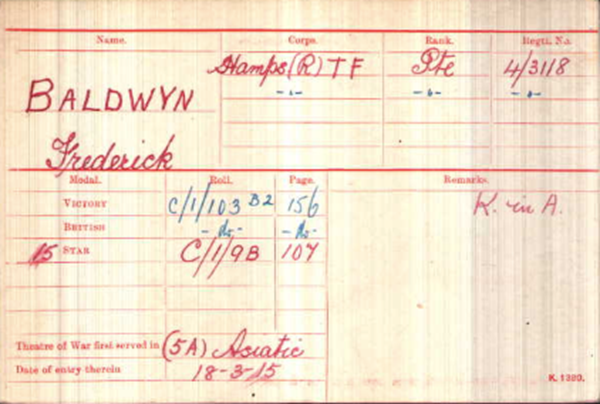 Name. Corps. Rank. Regtl. No.
Hamps (R) TF Pte 4/3118
BALDWYN -"- -"- -"-
Frederick
Medal. Roll. Page. Remarks.
VICTORY C/1/103 B2 156 K. in A.
BRITISH -do- -do-
15 STAR C/1/9B 107
Theatre of War first served in (5A) Asiatic
Date of entry therein 18-3-15
K. 1380.